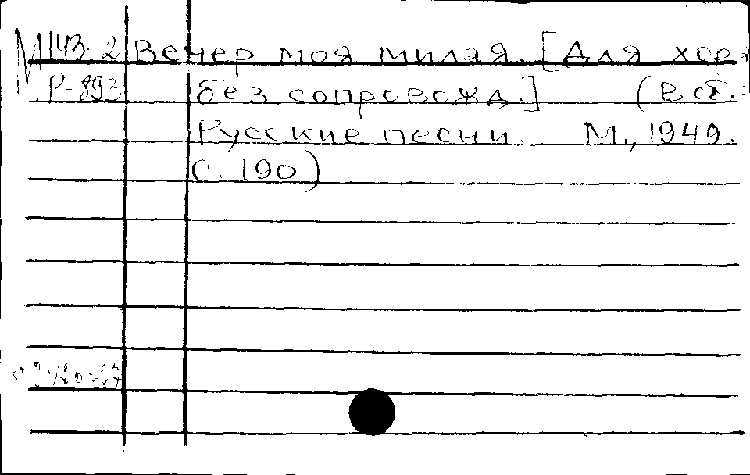 М143-2 Вечер моя милая. [Для хора
Р-893 без сопровожд.] (В сб.:
Русские песни. М., 1949.
С. 190)